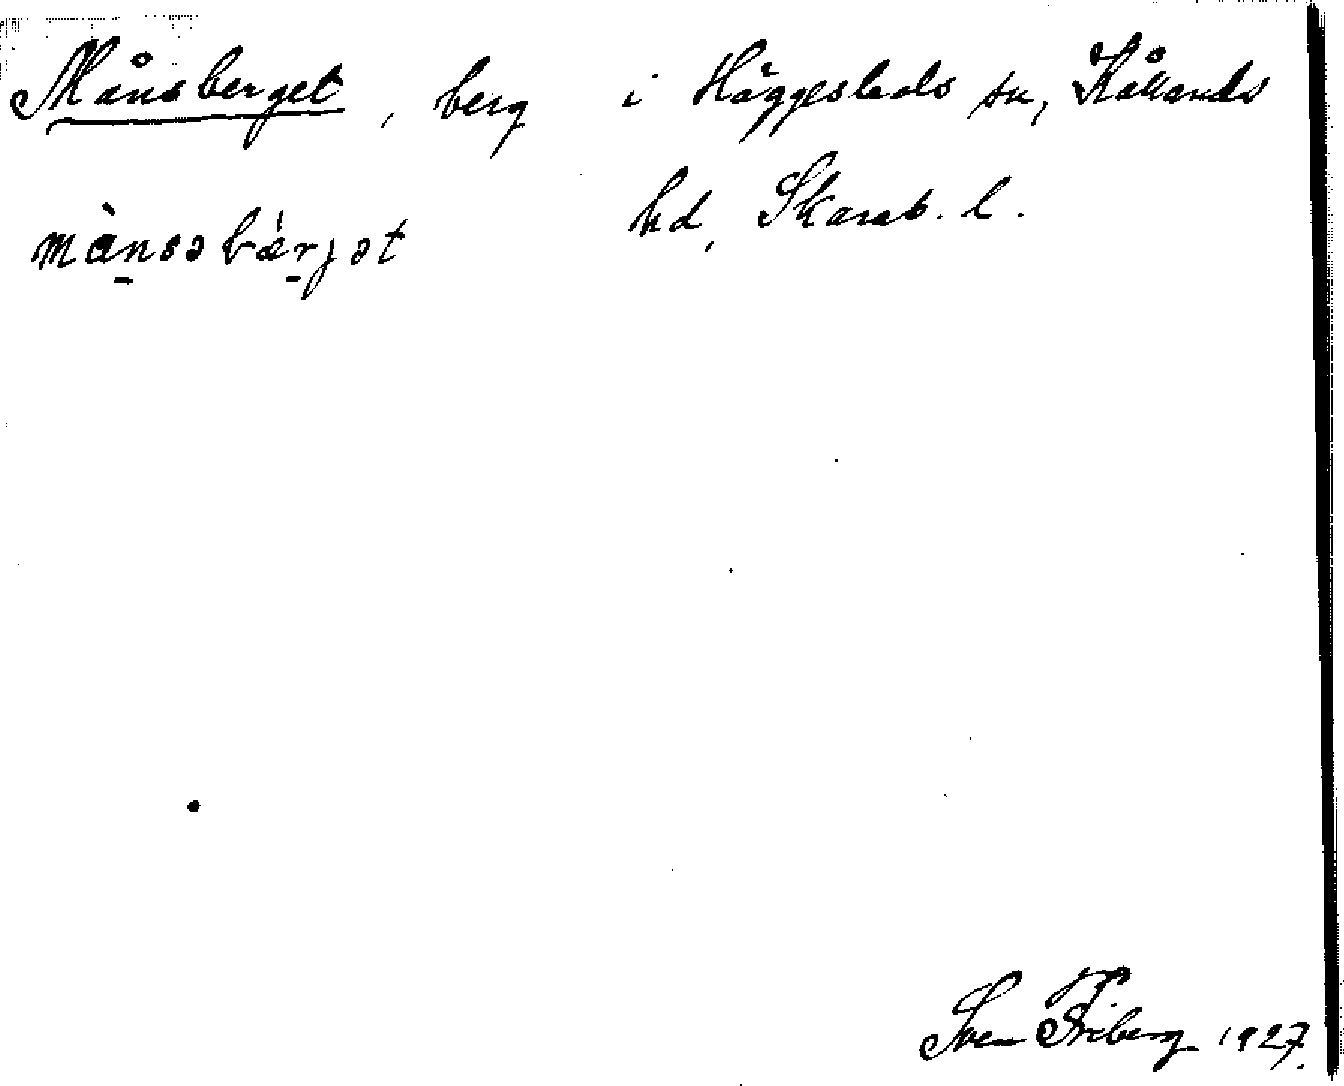 Månsberget, berg i Häggesleds sn, Kållands
hd, Skarab. l.
mànsəbǽrjət
Sven Friberg 1927.